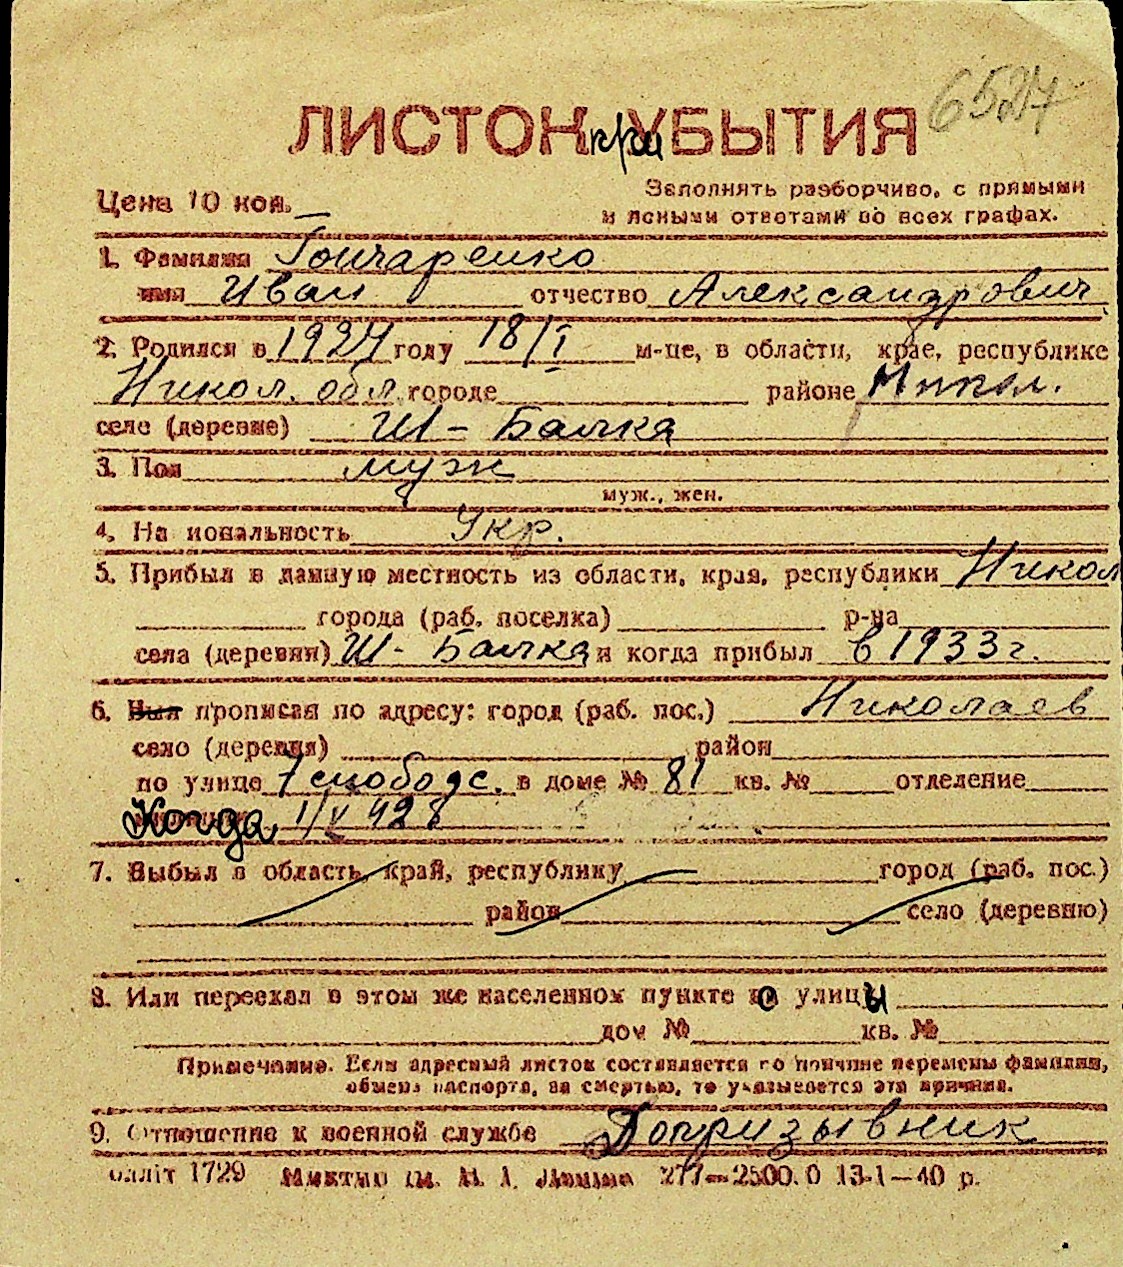 6527
ЛИСТОК УБЫТИЯ
Цена 10 коп.
Заполнять разборчиво, с прямыми
и ясными ответами во всех графах.
1. Фамилия Гончаренко
имя Иван отчество Александрович
2. Родился в 1927 году 18/I м-це, в области, крае, республике
Никол. обл. городе районе Никол.
селе (деревне) Ш-Балка
3. Пол муж
муж., жен.
4. На иональность Укр.
5. Прибыл в данную местность из области, края, республики Никол
города (раб. поселка) р-на
села (деревни) Ш-Балка и когда прибыл в 1933 г.
6. Был прописан по адресу: город (раб. пос.) Николаев
село (деревня) район
по улице 7 слободс. в доме № 81 кв. № отделение
Когда 1/V 42
7. Выбыл в область, край, республику город (раб. пос.)
район село (деревню)
8. Или переехал в этом же населенном пункте с улицы
дом № кв. №
Примечание. Если адресный листок составляется по причине перемены фамилии,
обмена паспорта, за смертью, то указывается эта причина.
9. Отношение к военной службе Допризывник
1729 277—2500.0 13-1—40 р.